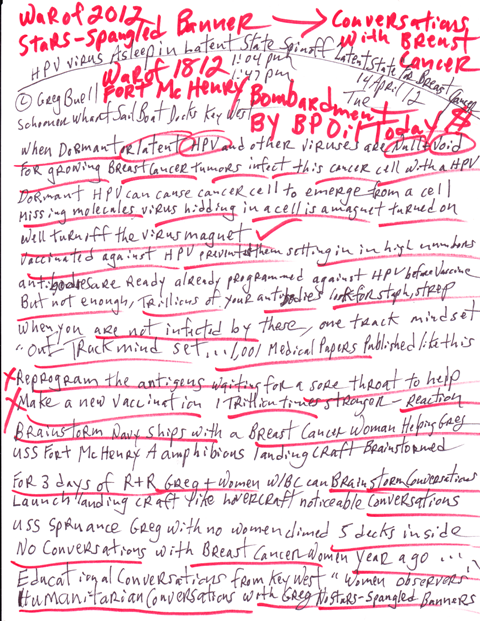 WAR of 2012 → Conversations
Stars-Spangled Banner with Breast Cancer
HPV virus Asleep in Latent State Spinoff Latent State for Breast Cancer
War of 1812 1:04 pm 14 April 12
Fort McHenry 1:47 pm Tue
© Greg Buell
Schooner Wharf Sail Boat Docks Key West
Bombardment
By BP Oil Today
When Dormant or latent HPV and other viruses are Null + Void
For growing Breast Cancer tumors infect this cancer cell with a HPV
Dormant HPV can cause cancer cell to emerge from a cell
missing molecules virus hidding in a cell is a magnet turned on
well turn off the virus magnet
Vaccinated against HPV prevented them setting in in high numbers
antibodies are Ready already programmed against HPV before Vaccine
But not enough, Trillions of your antibodies look for staph, strep
when you are not infected by these, one track mindset
"One Track mind set... 1,001 Medical Papers Published like this
X Reprogram the antigens waiting for a sore throat to help
X Make a new vaccination 1 Trillion times stronger - Reaction
Brainstorm Navy Ships with a Breast Cancer Woman Helping Greg
USS Fort McHenry A amphibions landing craft Brainstormed
For 3 days of R+R Greg + Women w/BC can Brainstorm Conversations
Launch landing craft like hovercraft noticeable conversations
USS Spruance Greg with no women climed 5 decks inside
No Conversations with Breast Cancer Women year ago ...
Educational Conversations from Key West "Women observers
Humanitarian Conversations with Greg No Stars-Spangled Banners